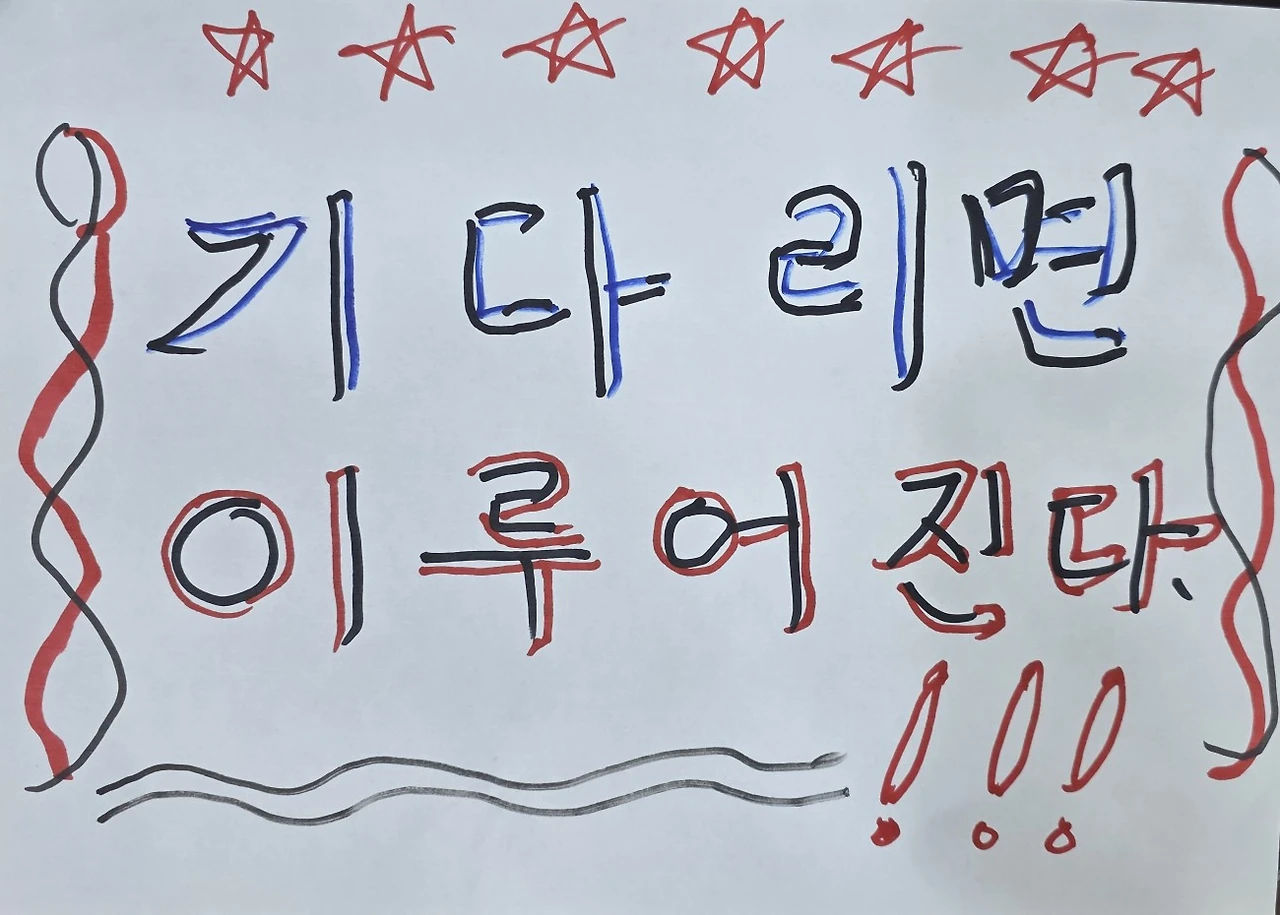 기다리면
이루어진다.
!!!